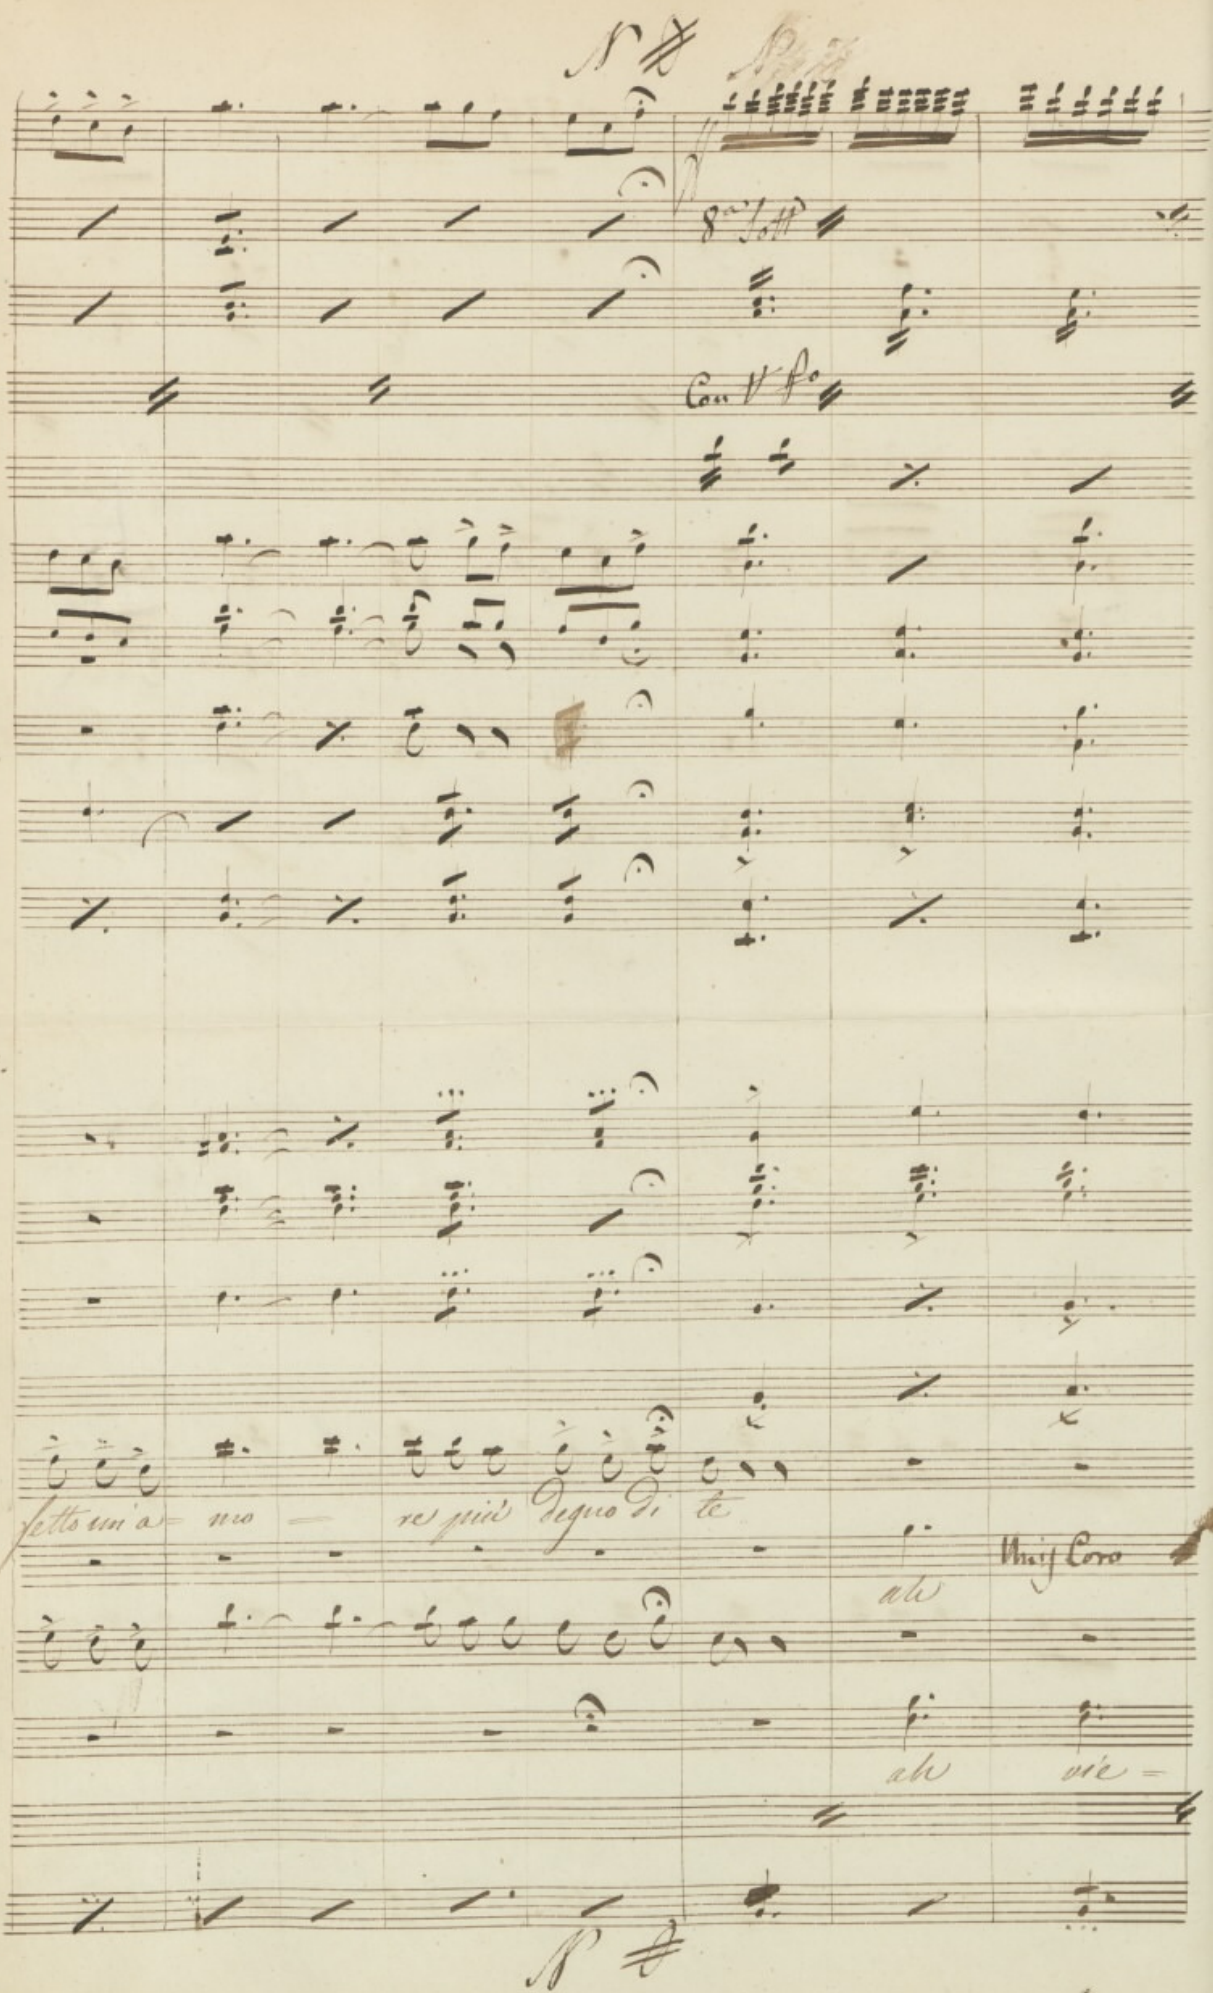 8va Sott
Con V
fetto un a = mo = re più degno di te
ah
Unis Coro
ah vie =